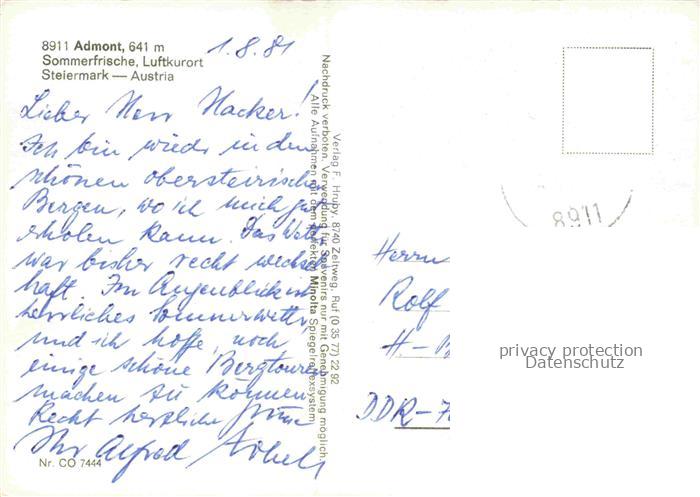 8911 Admont, 641 m
Sommerfrische, Luftkurort
Steiermark — Austria
1.8.81
Lieber Herr Hacker!
Ich bin wieder in den
schönen obersteirischen
Bergen, wo ich mich gut
erholen kann. Das Wetter
war bisher recht wechsel
haft. Im Augenblick ist
herrliches Sommerwetter,
und ich hoffe, noch
einige schöne Bergtouren
machen zu können.
Recht herzliche Grüße
Ihr Alfred
Nr. CO 7444
Nachdruck verboten, Verwendung für Souvenirs nur mit Genehmigung möglich.
Verlag F. Hruby, 8740 Zeltweg, Ruf (0 35 77) 22 92
Alle Aufnahmen mit dem Minolta Spiegelreflexsystem
8911
Herrn
Rolf
H.-
DDR-7
privacy protection
Datenschutz